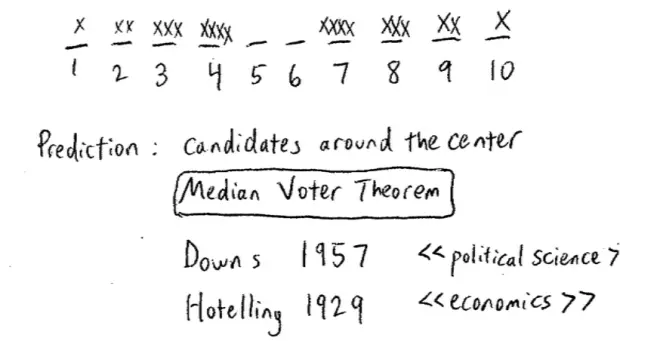 X XX XXX XXXX _ _ XXXX XXX XX X
1 2 3 4 5 6 7 8 9 10
Prediction : Candidates around the center
Median Voter Theorem
Downs 1957 <<political science >
Hotelling 1929 <<economics >>